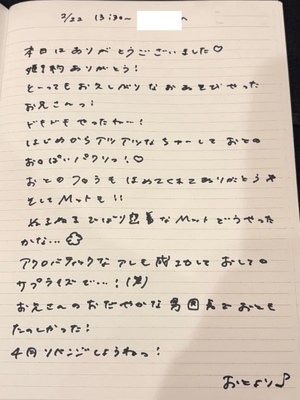 2/22 13:30~ へ
本日はありがとうございました♡
ありがとう!
とーってもお久しぶりなおあそびやった
お兄さんっ!
ドキドキやったねー!
はじめからアツアツなちゅーしておとの
おっぱいパクリっ!♡
おとのフロうもほめてくれてありがとう
そしてMットも!!
ぬるぬる Mットどうやった
かな…
アクロバティックなアレも成功しておしての
サプライズで…!(笑)
お兄さんのおだやかな雰囲気でおとも
たのしかった!
4回リベンジしようねっ!
おとより♪